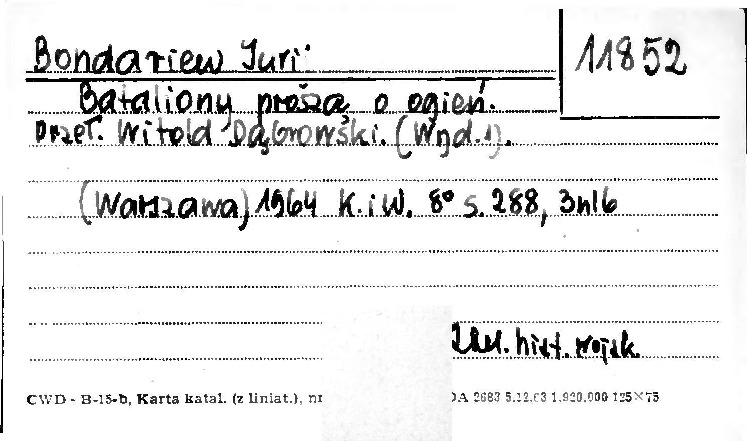 Bondariew Juri:
11852
Bataliony proszą o ogień.
przeł. Witold Dąbrowski. (Wyd. 1).
(Warszawa) 1964 K.iW. 8° s. 288, 3nlb
hist. wojsk.
CWD - B-15-b, Karta katal. (z liniat.), nr DA 2683 5.12.63 1.920.000 125×75